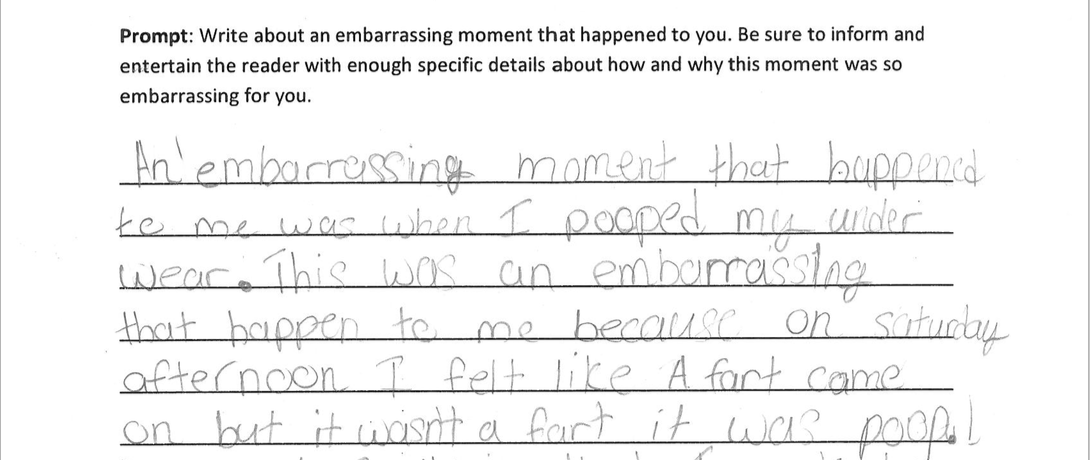 Prompt: Write about an embarrassing moment that happened to you. Be sure to inform and
entertain the reader with enough specific details about how and why this moment was so
embarrassing for you.
An embarrassing moment that happened
to me was when I pooped my under
wear. This was an embarrassing
that happen to me because on saturday
afternoon I felt like A fart came
on but it wasn't a fart it was poop!